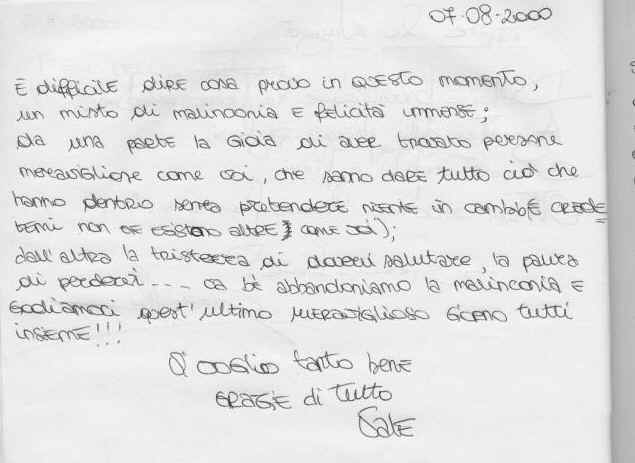 07-08-2000
È difficile dire cosa provo in questo momento,
un misto di malinconia e felicità immense;
da una parte la gioia di aver trovato persone
meravigliose come voi, che sanno dare tutto ciò che
hanno dentro senza pretendere niente in cambio (e crede
temi non ce esistono altre come voi);
dall'altra la tristezza di dovervi salutare, la paura
di perdervi.... va bè abbandoniamo la malinconia e
godiamoci quest'ultimo meraviglioso giorno tutti
insieme!!!
Vi voglio tanto bene
grazie di tutto